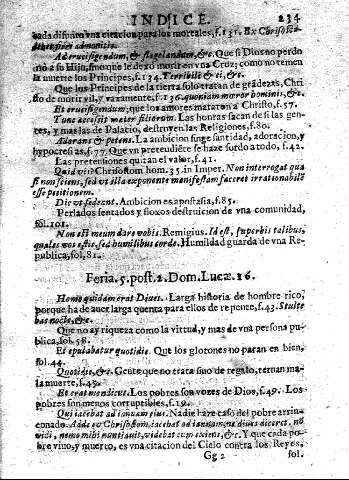 INDICE. 234
cada difunto vna citacion para los mortales, f.131. Ex Chrisost.
Ad crucifigendum, & flagellandum, &c. Que si Dios no perdo
nò a su Hijo, sino que le dexò morir en vna Cruz; como no temen
la muerte los Principes, f.134. Terribili & ei, &c.
Que los Principes de la tierra solo tratan de grãdezas, Chri
sto de morir vil, y varamente, f.136. quoniam maror hominis, &c.
Et crucifigendum; que los amores mataron a Christo, f.57.
Tunc accessit mater filiorum. Las honras sacan de si las gen
tes, y mas las de Palacio, destruyen las Religiones, f.80.
Adorans & petens. La ambicion finge santidad, adoracion, y
hypocresias, f.77. Que vn pretendiẽte se haze sordo a todo, f.42.
Las pretensiones quitan el valor, f.41.
Quid vis? Chrisostom hom. 35. in Imper. Non interrogat qua
si nonsciens, sed vt illa exponente manifestam faceret irrationabilẽ
esse petitionem.
Dic vt sedeant. Ambicion es apostasia, f.85.
Perlados sentados y floxos destruicion de vna comunidad,
fol.101.
Non est meum dare vobis. Remigius. Id est, superbis talibus,
quales vos estis, sed humilibus corde. Humildad guarda de vna Re-
publica, fol, 81.
Feria. 5. post. 2. Dom. Lucæ. 16.
Homo quidam erat Diues. Larga historia de hombre rico,
porque ha de auer larga quenta para ellos de repente, f.43. Stulte
hac nocte, &c.
Que no ay riqueza como la virtud, y mas de vna persona pu-
blica, fol. 58.
Et epulabatur quotidie. Que los glotones no paran en bien,
fol. 44.
Quotidie, &c. Gente que no trata sino de regalo, ternan ma-
la muerte, f.45.
Et erat mendicus. Los pobres son vozes de Dios, f.49. Los
pobres son menos corruptibles, f.19.
Qui iacebat ad ianuam eius. Nadie haze caso del pobre arrin-
conado. Adde ex Chrisostom, iacebat ad ianuam, ne diues diceret. no
vidi, nemo mihi nuntiauit, videbat eum exiens, &c. Y que cada po-
bre viuo, y muerto, es vna citacion del Cielo contra los Reyes,
Gg 2 fol.